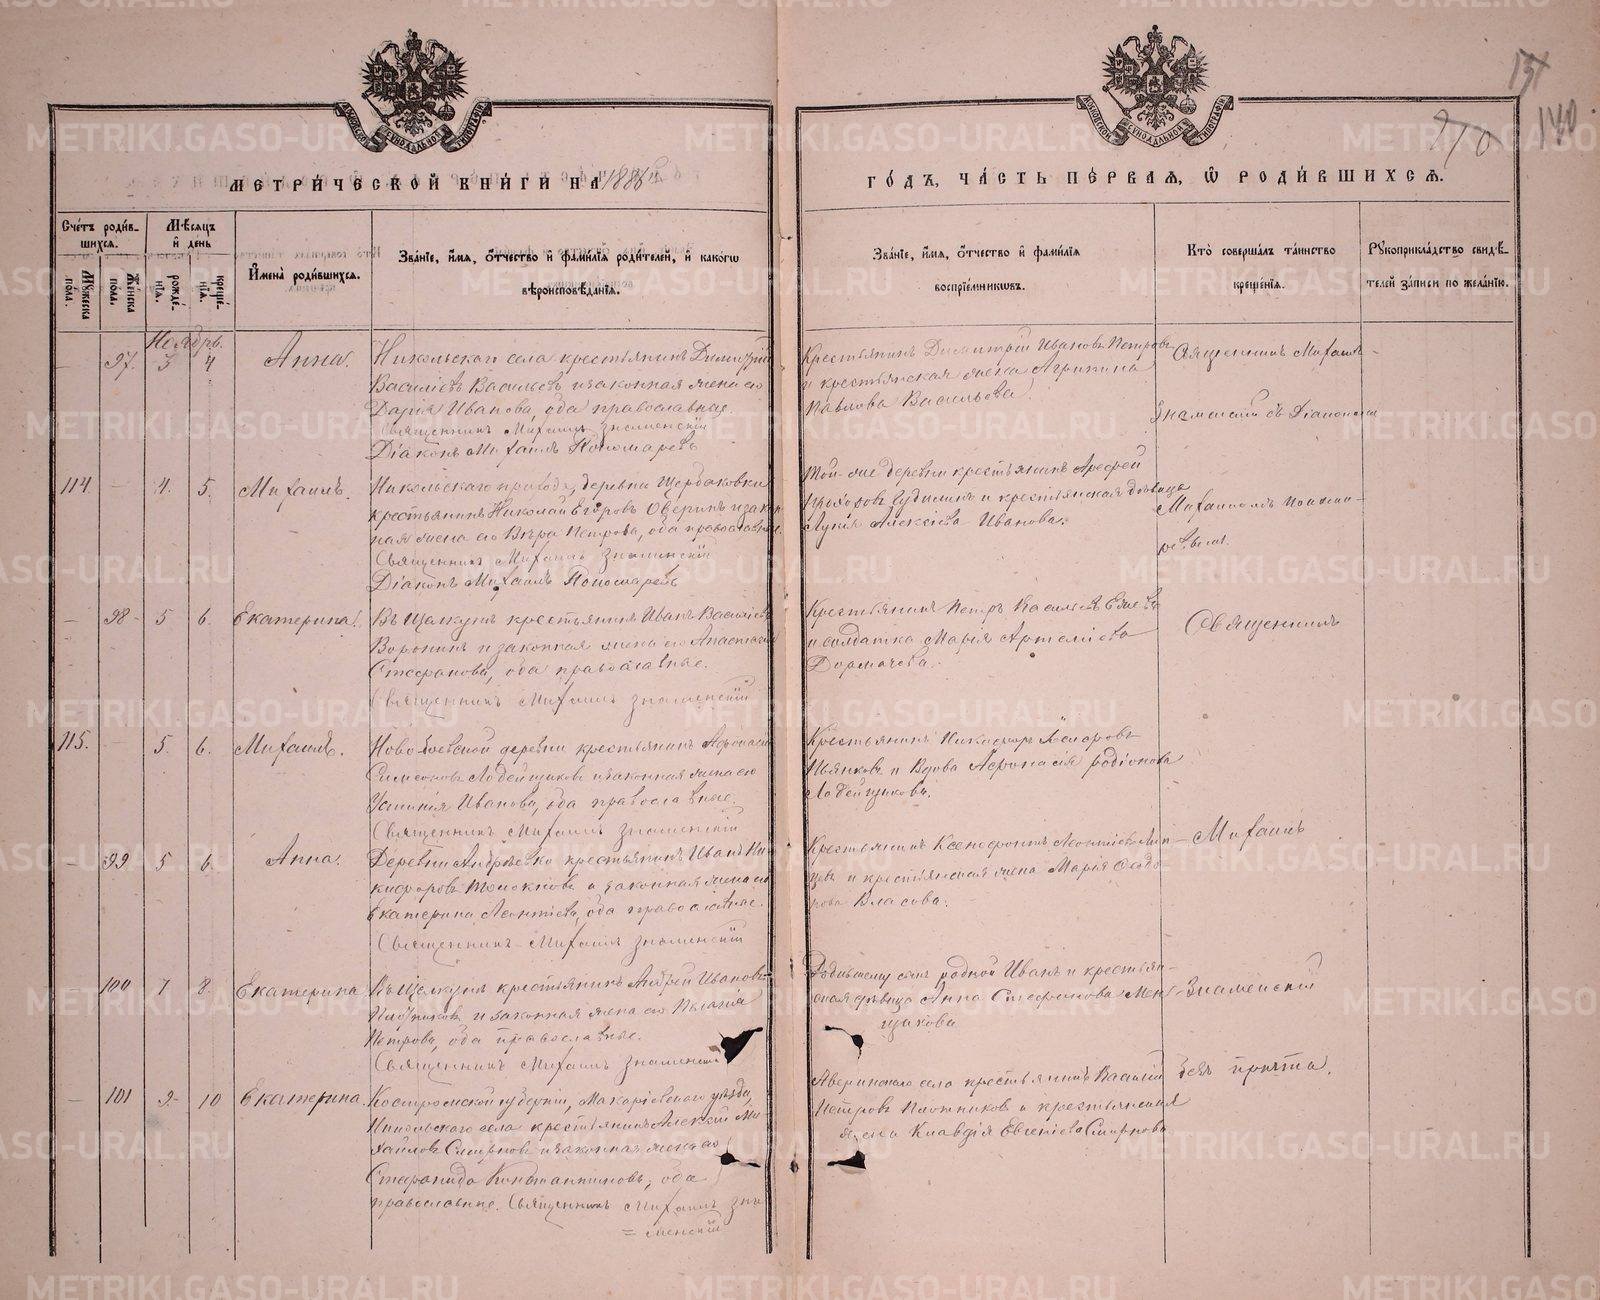 МЕТРИ́ЧЕСКОЙ КНИ́ГИ НА 1886й
ГО́ДЪ, ЧА́СТЬ ПЕ́РВАЯ, Ѡ РОДИ́ВШИХСЯ.
140
Сче́тъ роди́в-
шихся.
Му́жеска по́ла.
Же́нска по́ла.
Мѣ́сяцъ
и́ де́нь
рожде́-
нїя.
креще́-
нїя.
И҆мена̀ роди́вшихся.
Зва́нїе, и҆́мя, ѻ҆́тчество и҆ фами́лїя роди́телей, и҆ како́гѡ
вѣроисповѣ́данїя.
Зва́нїе, и҆́мя, ѻ҆́тчество и҆ фами́лїя
воспрїе́мникѡвъ.
Кто̀ соверша́лъ та́инство
креще́нїя.
Рꙋкоприкла́дство свидѣ́-
телей за́писи по жела́нїю.
Ноябрь.
97. 3 4 Анна.
Никольскаго села крестьянинъ Димитрій
Василіевъ Васильевъ и законная жена его
Дарія Иванова, оба православные.
Священникъ Михаилъ Знаменскій
Діаконъ Михаилъ Пономаревъ
Крестьянинъ Димитрій Ивановъ Петровъ
и крестьянская жена Агрипина
Павлова Васильева.
Священникъ Михаилъ
Знаменскій съ Діакономъ
114 4. 5. Михаилъ.
Никольскаго прихода, деревни Щербаковки
крестьянинъ Николай Егоровъ Оверинъ и закон
ная жена его Вѣра Петрова, оба православные.
Священникъ Михаилъ Знаменскій
Діаконъ Михаилъ Пономаревъ
Той-же деревни крестьянинъ Арефей
Прохоровъ и крестьянская дѣвица
Алексіева Иванова.
Михаиломъ Пономаревымъ.
98 5 6. Екатерина.
Въ Щелкунъ крестьянинъ Иванъ Василіевъ
Воронинъ и законная жена его Анастасія
Стефанова, оба православные.
Священникъ Михаилъ Знаменскій
Крестьянинъ Петръ Василіевъ
и солдатка Марія Артеміева
Священникъ
115. 5. 6. Михаилъ.
деревни крестьянинъ
Симеоновъ Лодейщиковъ и законная жена его
Иванова, оба православные.
Священникъ Михаилъ Знаменскій
Крестьянинъ Никифоръ
и вдова Афонасія Родіонова
Лодейщикова.
99 5 6 Анна.
Деревни Андрѣевки крестьянинъ Иванъ Ни-
кифоровъ и законная жена его
Екатерина Леонтіева, оба православные.
Священникъ Михаилъ Знаменскій
Крестьянинъ Ксенофонтъ Леонтіевъ
и крестьянская жена Марія Ѳедо-
рова Власова.
Михаилъ
100 7 8. Екатерина
Въ Щелкунъ крестьянинъ Андрей Ивановъ
Плотниковъ и законная жена его Пелагія
Петрова, оба православные.
Священникъ Михаилъ Знаменскій
Родившему сынъ родной Иванъ и крестьян-
ская дѣвица Анна Стефанова Мен-
щикова
Знаменскій
101 9- 10 Екатерина.
Костромской губерніи, Макаріевскаго уѣзда,
Никольскаго села крестьянинъ Алексѣй Ми-
хайловъ Смирновъ и законная жена его
Стефанида Константинова, оба
православные. Священникъ Михаилъ Зна
= менскій
Аверинскаго села крестьянинъ Василій
Петровъ Плотниковъ и крестьянская
жена Клавдія Евгеніева Смирнова
безъ причта.
METRIKI.GASO-URAL.RU